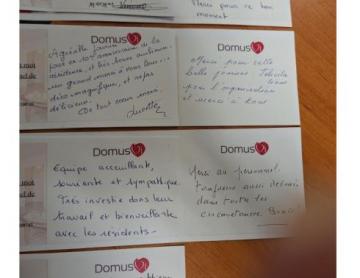 Merci pour ce bon
moment
Domus Vi
Agréable journée
pour ce 10e anniversaire de la
résidence, et très bonne ambiance
un grand merci à tous leur
déco magnifique, et repas
délicieux.
De tout coeur merci.
Domus Vi
Merci pour cette
belle journée
pour l'organisation
et merci à tous
Domus Vi
Equipe acceuillante,
souriante et sympathique.
Très investie dans leur
travail et bienveillante
avec les résidents.
Domus Vi
Merci au personnel
toujours aussi dévoué
dans toutes les
circonstances. Bravo
Domus